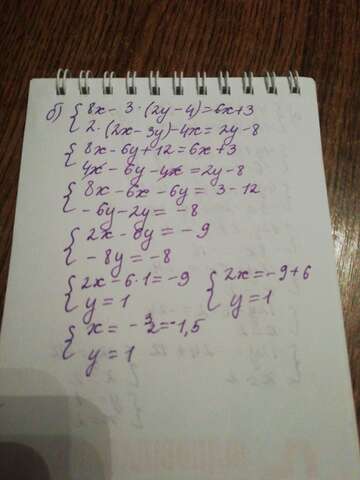 б) { 8x - 3 · (2y - 4) = 6x + 3
2 · (2x - 3y) - 4x = 2y - 8
{ 8x - 6y + 12 = 6x + 3
4x - 6y - 4x = 2y - 8
{ 8x - 6x - 6y = 3 - 12
- 6y - 2y = - 8
{ 2x - 6y = - 9
- 8y = - 8
{ 2x - 6 · 1 = - 9 { 2x = - 9 + 6
y = 1 y = 1
{ x = - 3/2 = - 1,5
y = 1